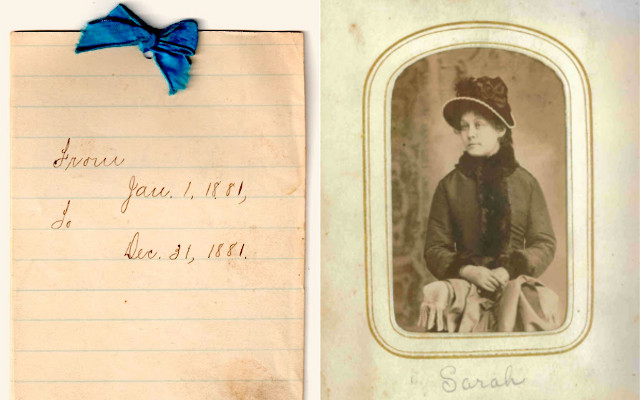 From
Jan. 1, 1881,
To
Dec. 31, 1881.
Sarah